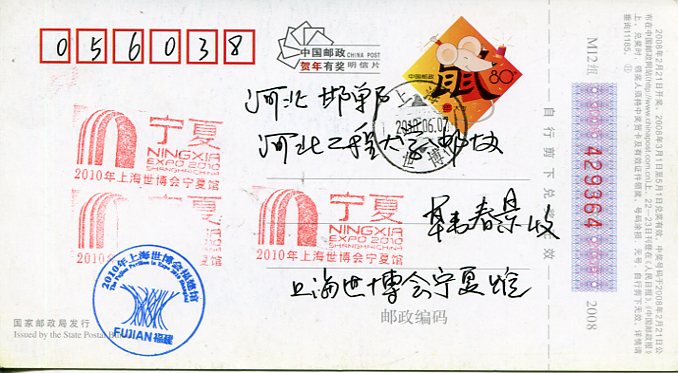 056038
中国邮政 CHINA POST
贺年有奖 明信片
中国邮政
鼠
80分
河北 邯郸
河北工程大学
2010.06.07
世博
宁夏
NINGXIA
EXPO 2010
SHANGHAI CHINA
2010年上海世博会宁夏馆
宁夏
2010年上海世博会宁夏馆
宁夏
NINGXIA
EXPO 2010
SHANGHAI CHINA
2010年上海世博会宁夏馆
春景 收
上海世博会宁夏馆
2010年上海世博会福建馆
The Fujian Pavilion in Expo 2010 Shanghai
FUJIAN 福建
国家邮政局发行
Issued by the State Postal Bureau
邮政编码
自行剪下兑奖无效
M12组
429364
2008
2008年2月21日开奖,2008年3月1日至5月1日兑奖有效,中奖号码于2008年2月21日公
布在中国邮政网站(http://www.chinapost.com.cn)上,22—23日刊登在《人民日报》、《中国邮政报》
上。兑奖时,领奖人须持中奖贺卡及有效证件领奖。号码涂损、无号、自行剪下无效,详情请
垂询11185。